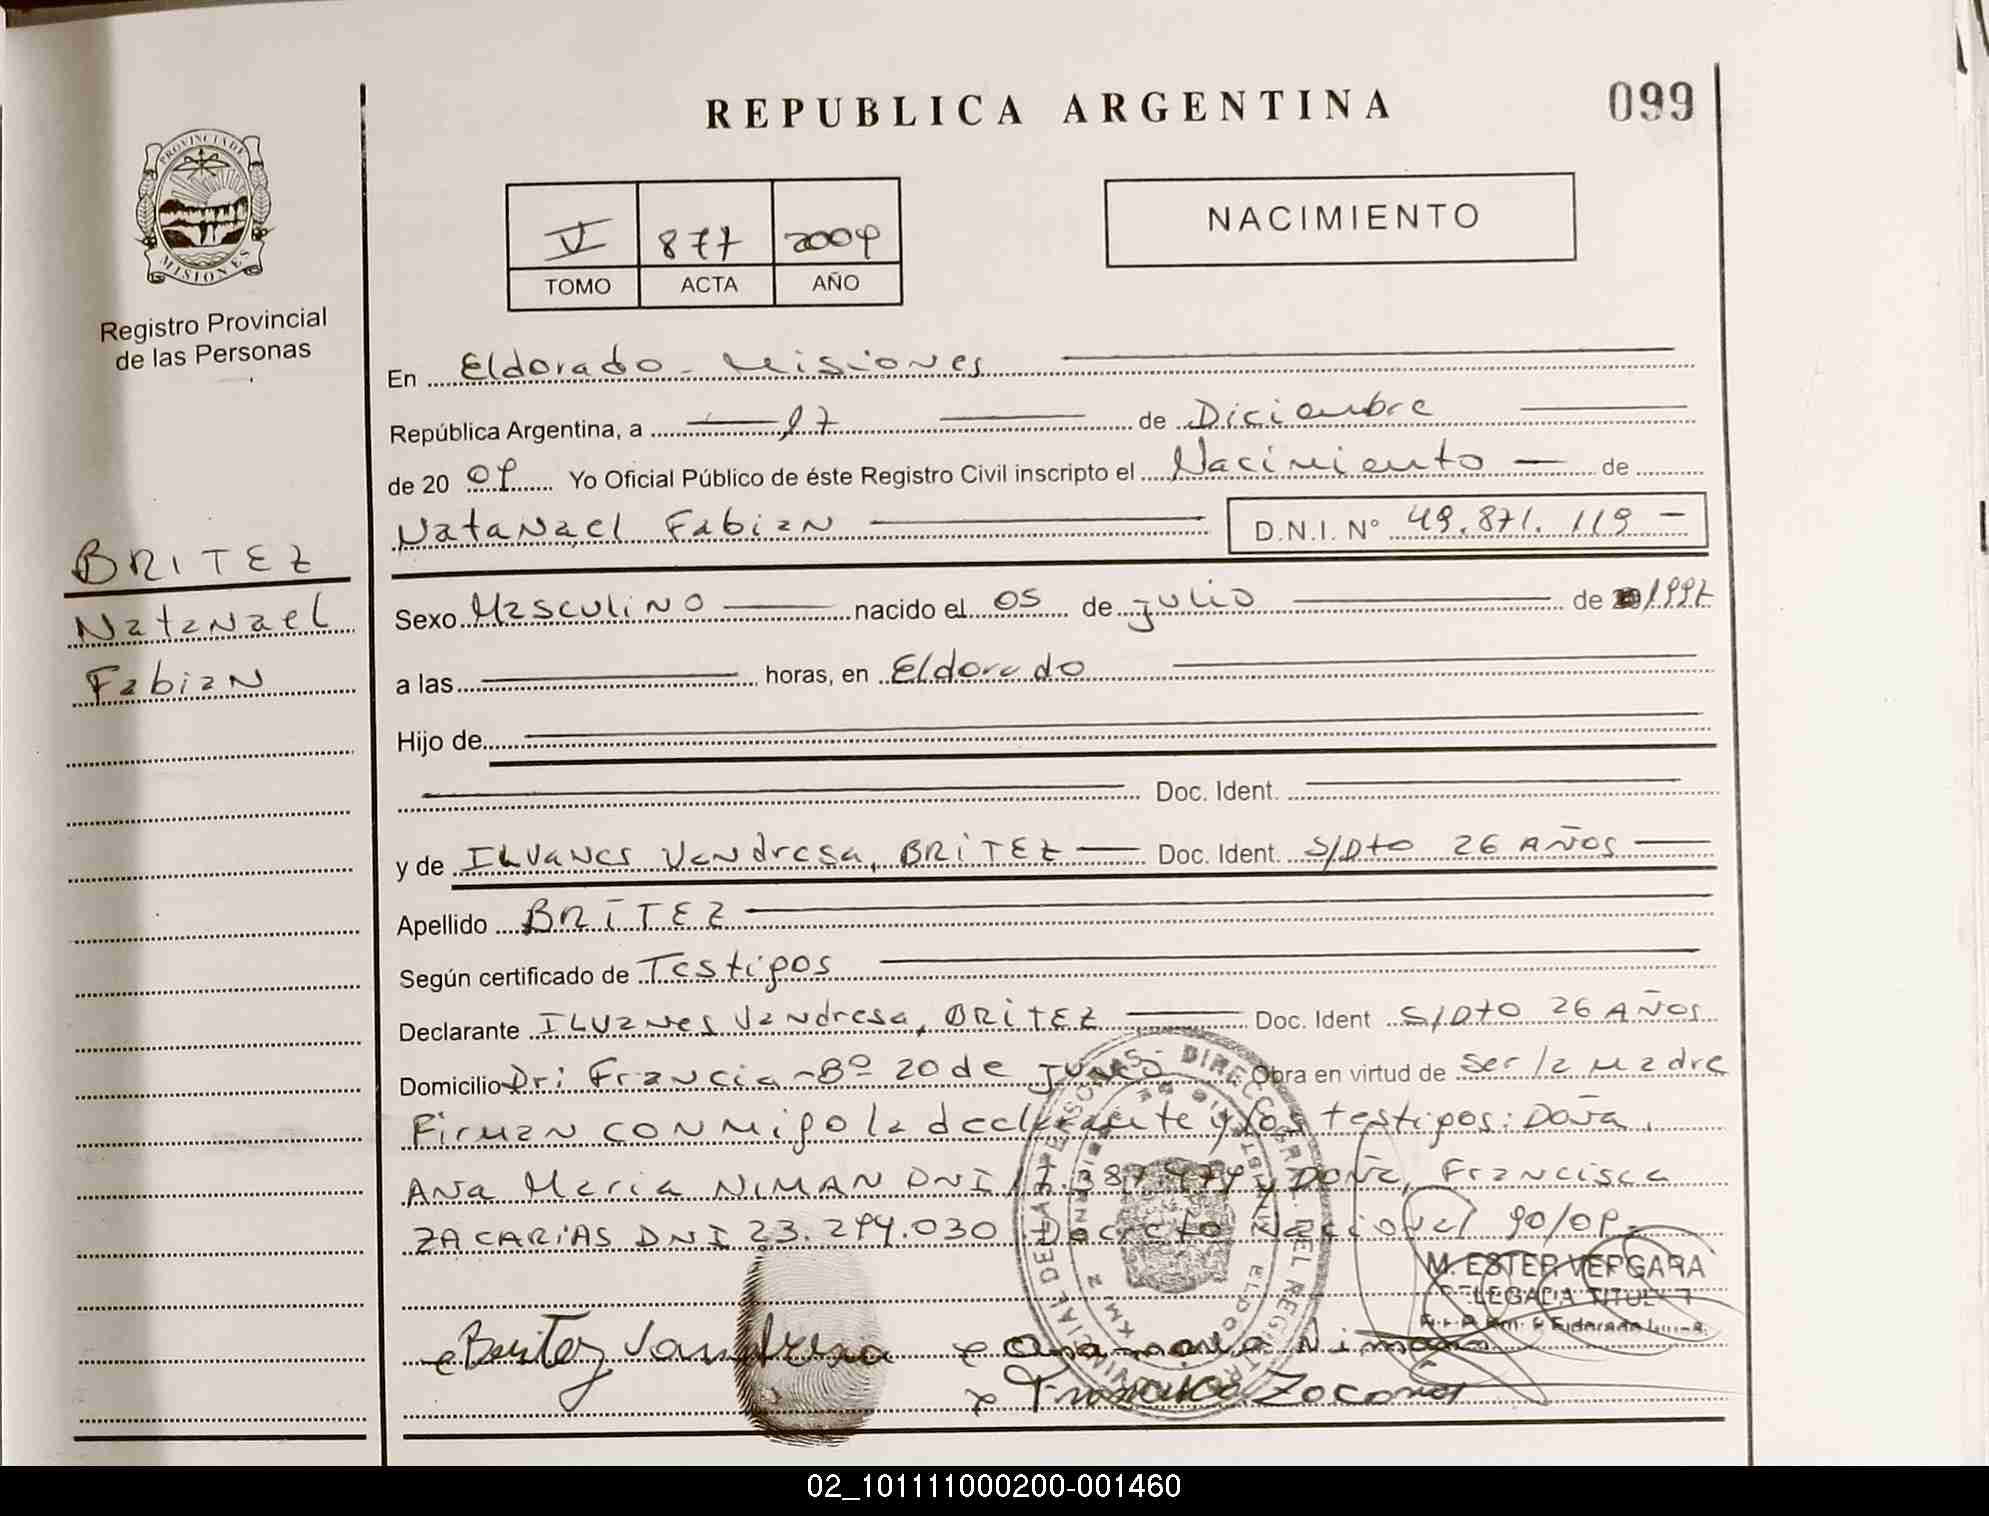 REPUBLICA ARGENTINA
099
PROVINCIA DE
MISIONES
Registro Provincial
de las Personas
V 877 2009
TOMO ACTA AÑO
NACIMIENTO
En Eldorado - Misiones
República Argentina, a 17 de Diciembre
de 20 09 Yo Oficial Público de éste Registro Civil inscripto el Nacimiento de
Natanael Fabian D.N.I. Nº 49.871.119
BRITEZ
Natanael
Fabian
Sexo Masculino nacido el 05 de julio de 1997
a las horas, en Eldorado
Hijo de
Doc. Ident.
y de Ilvanes Vandresa, BRITEZ Doc. Ident. S/Dto 26 AÑOS
Apellido BRITEZ
Según certificado de Testigos
Declarante ILVanes Vandresa, BRITEZ Doc. Ident S/Dto 26 AÑOS
Domicilio Dr: Francia - Bº 20 de Junio Obra en virtud de ser la Madre
Firman conmigo la declarante y los testigos: Doña
Ana Maria NIMAN DNI Doña, Francisca
ZACARIAS DNI 23.294.030 Decreto Nacional 90/09
M. ESTER VERGARA
DELEGADA TITULAR
Britez Vandresa Ana maria Niman
Francisca Zacarias
02_101111000200-001460